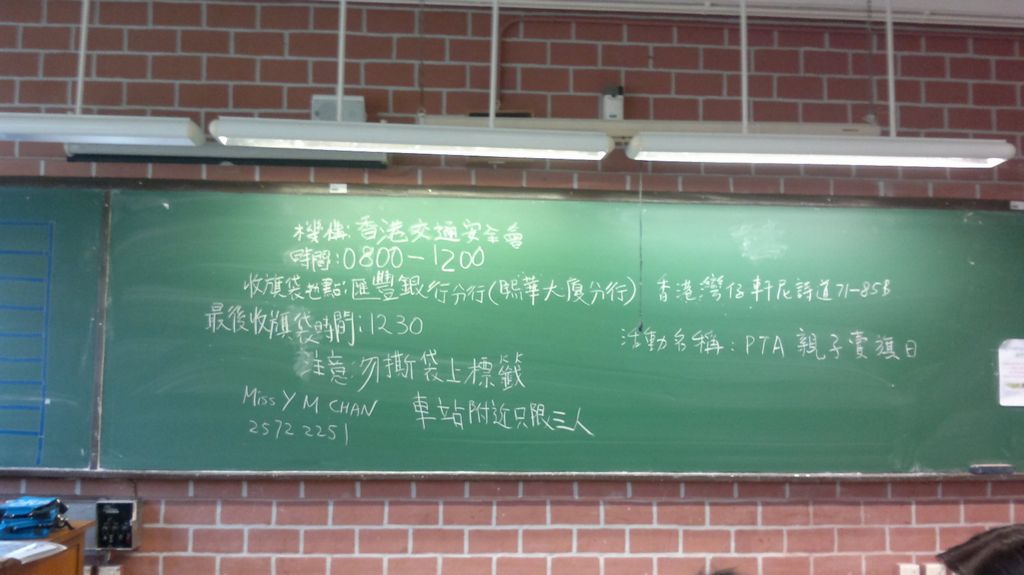 機構:香港交通安全會
時間:0800-1200
收旗袋地點:匯豐銀行分行(熙華大廈分行) 香港灣仔軒尼詩道71-85B
最後收旗袋時間:1230
活動名稱:PTA 親子賣旗日
注意:勿撕袋上標籤
Miss Y M CHAN
2572 2251
車站附近只限三人